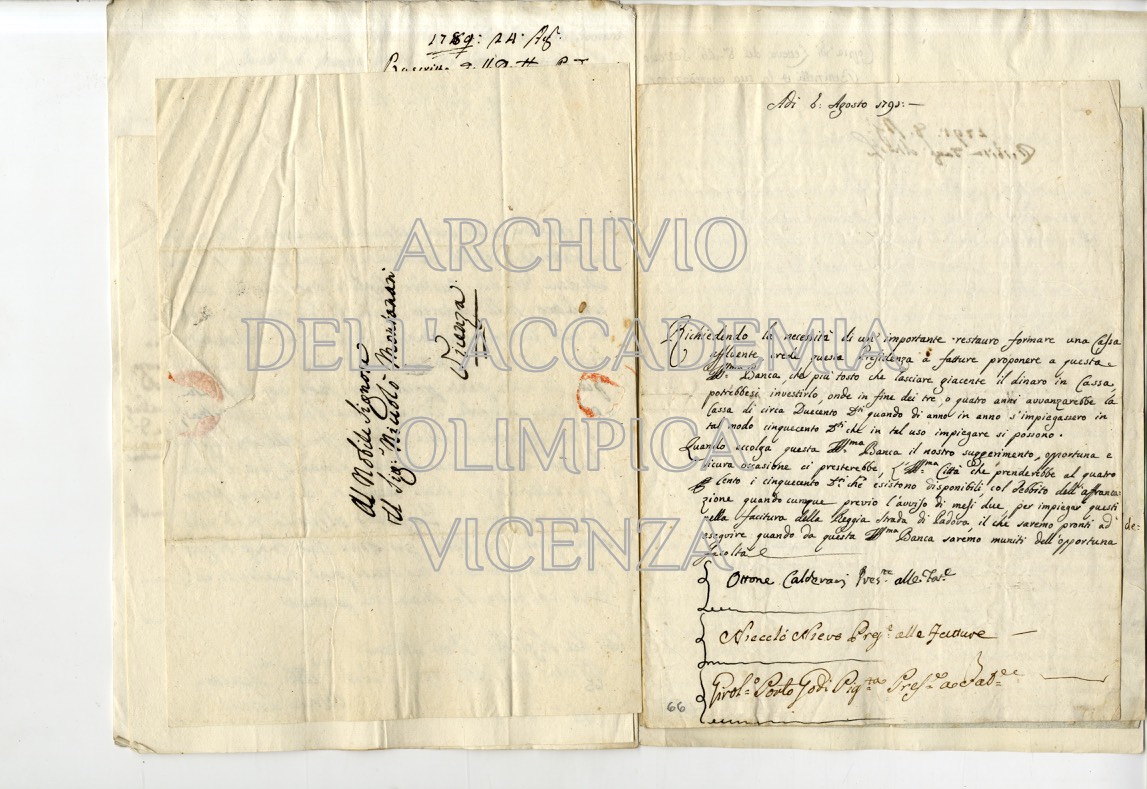 1789: 24: Ag.
Al Nobile Signore
Il Sig.r Nicolò Montanari
Vicenza
Adi 6: Agosto 1791:—
Richiedendo la necessità di un' importante restauro formare una Cassa
affluente crede questa Presidenza a fatture proponere a questa
Ill.ma Banca che più tosto che lasciare giacente il dinaro in Cassa,
potrebbesi investirlo, onde in fine dei tre, o quatro anni avvanzarebbe la
Cassa di circa Duecento D.ti quando di anno in anno s'impiegassero in
tal modo cinquecento D.ti che in tal uso impiegar si possono.
Quando accolga questa Ill.ma Banca il nostro suggerimento, opportuna e
sicura occasione ci presterebbe Ill.ma Città che prenderebbe al quatro
p Cento i cinquecento D.ti che esistono disponibili col debbito dell'affranca-
zione quando cunque previo l'avviso di mesi due, per impiegar questi
nella facitura della Reggia Strada di Padova, il che saremo pronti ad
eseguire quando da questa Ill.ma Banca saremo muniti dell'opportuna
facoltà
de:
Ottone Calderari Pres.te alle Fat.e
Niccolò Nievo Pres.e alle Fatture
Girol.o Porto Godi Pig.ta Pres.e a Fat.e
66
ARCHIVIO
DELL'ACCADEMIA
OLIMPICA
VICENZA